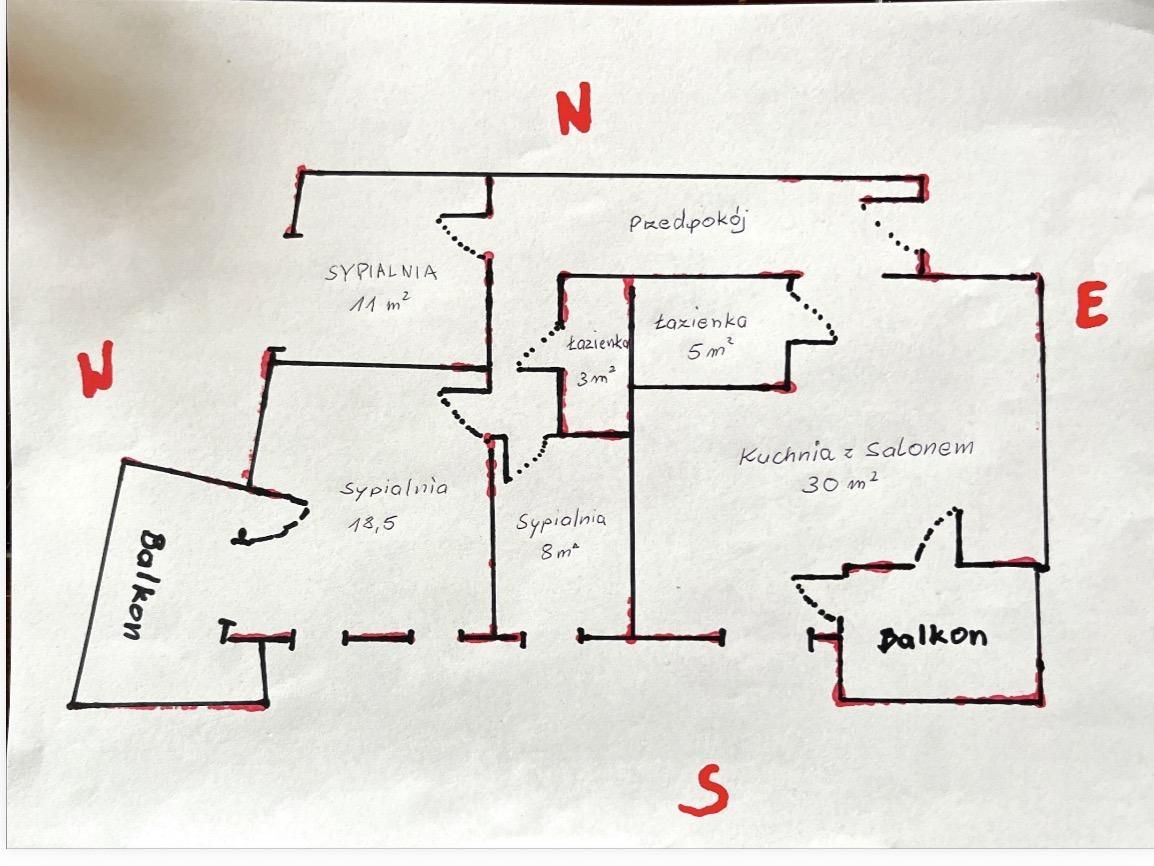 N
Przedpokój
SYPIALNIA
11 m²
E
Łazienka
3 m²
Łazienka
5 m²
W
Kuchnia z salonem
30 m²
Sypialnia
18,5
Sypialnia
8 m²
Balkon
Balkon
S